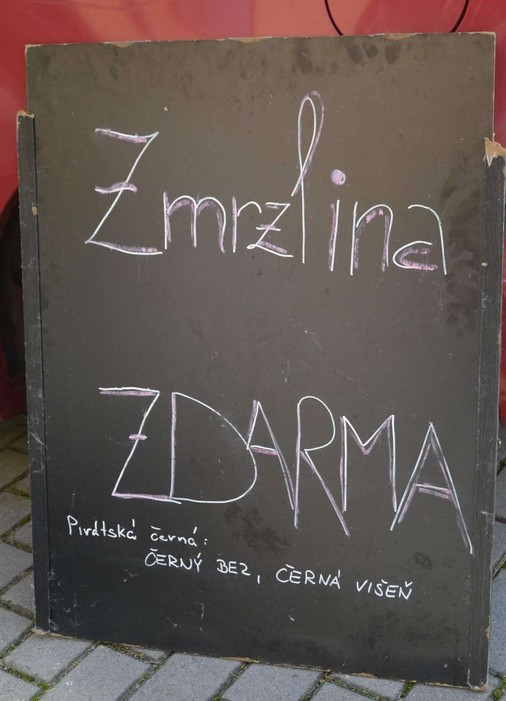 Zmrzlina
ZDARMA
Pirátská černá:
ČERNÝ BEZ, ČERNÁ VIŠEŇ